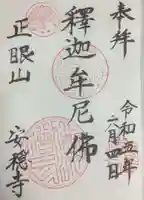 奉拝
令和五年
二月四日
釋迦牟尼佛
正眼山
安穏寺